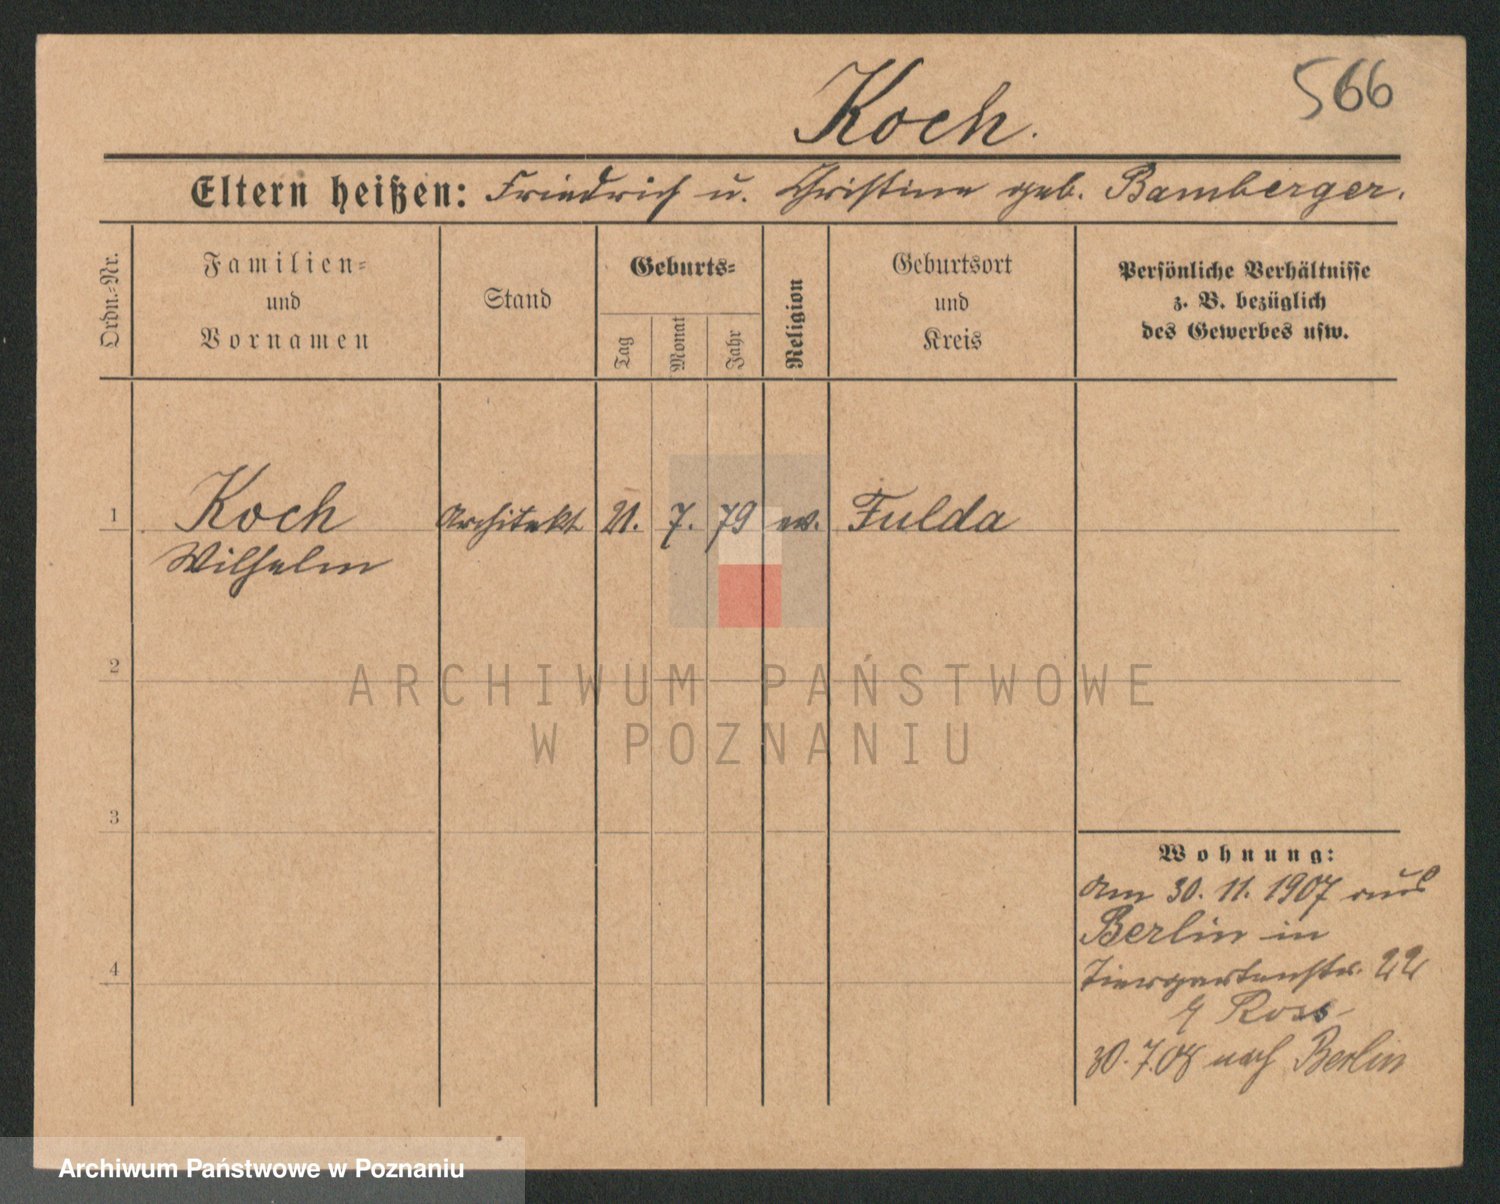 566
Koch.
Eltern heißen: Friedrich u. Christine geb. Bamberger.
Ordn.-Nr.
Familien-
und
Vornamen
Stand
Geburts-
Tag
Monat
Jahr
Religion
Geburtsort
und
Kreis
Persönliche Verhältnisse
z. B. bezüglich
des Gewerbes usw.
1 Koch Architekt 21. 7. 79 ev. Fulda
Wilhelm
2
ARCHIWUM PAŃSTWOWE
W POZNANIU
3
Wohnung:
Am 30. 11. 1907 aus
Berlin in
4
Tiergartenstr. 22
Ross
30. 7. 08 nach Berlin
Archiwum Państwowe w Poznaniu